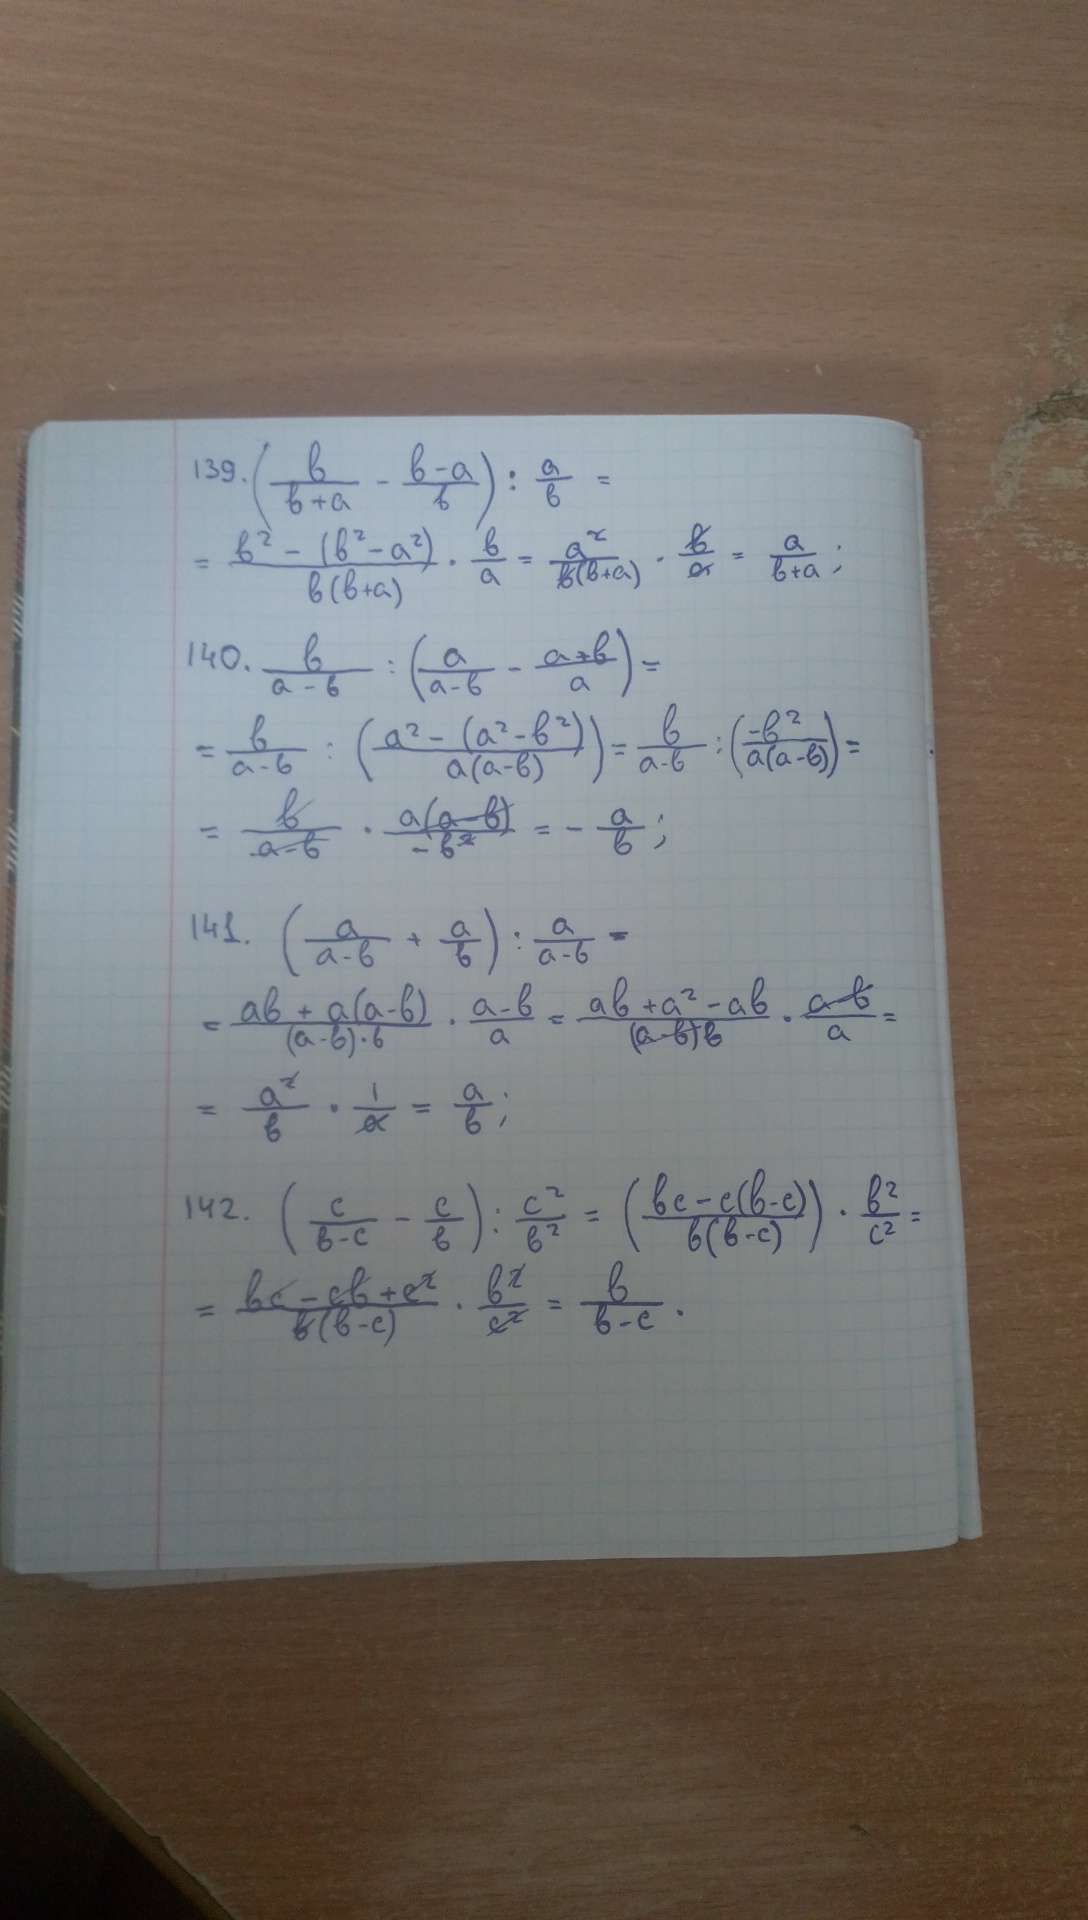 139. (b/(b+a) - (b-a)/b) : a/b =
= (b² - (b² - a²))/(b(b+a)) · b/a = a²/(b(b+a)) · b/a = a/(b+a);
140. b/(a-b) : (a/(a-b) - (a+b)/a) =
= b/(a-b) : ((a² - (a² - b²))/(a(a-b))) = b/(a-b) : (-b²/(a(a-b))) =
= b/(a-b) · a(a-b)/(-b²) = - a/b;
141. (a/(a-b) + a/b) : a/(a-b) =
= (ab + a(a-b))/((a-b)·b) · (a-b)/a = (ab + a² - ab)/((a-b)b) · (a-b)/a =
= a²/b · 1/a = a/b;
142. (c/(b-c) - c/b) : c²/b² = ((bc - c(b-c))/(b(b-c))) · b²/c² =
= (bc - cb + c²)/(b(b-c)) · b²/c² = b/(b-c).